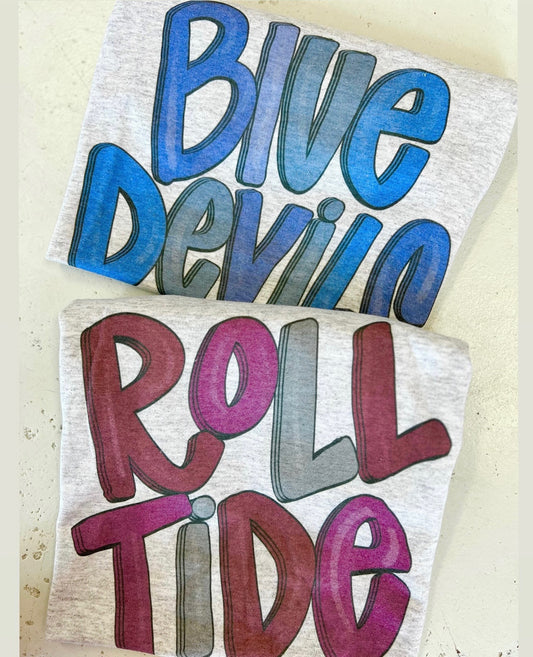 Blue
Devils
Roll
Tide